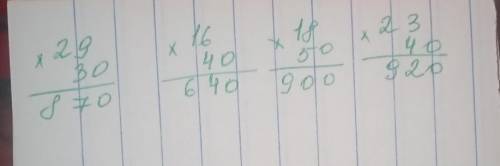 × 29
30
870
× 16
40
640
× 18
50
900
× 23
40
920